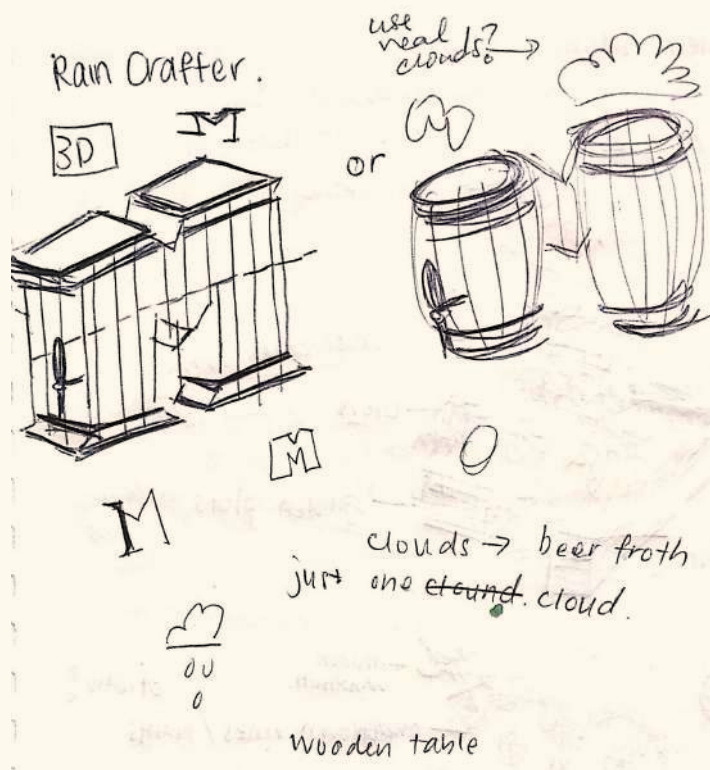 Rain Drafter.
use
real
clouds?
3D
M
or
M
M
clouds → beer froth
just one clound. cloud.
wooden table